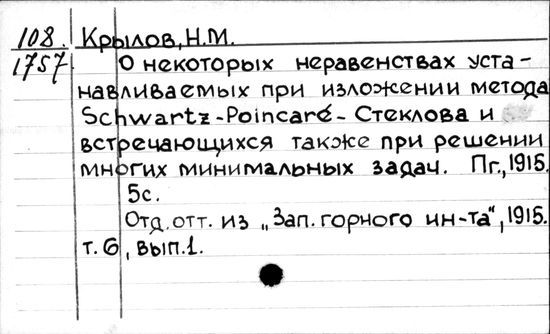 108. Крылов, Н.М.
1757. О некоторых неравенствах уста-
навливаемых при изложении метода
Schwartz-Poincaré-Стеклова и
встречающихся также при решении
многих минимальных задач. Пг., 1915.
5с.
Отд. отт. из „Зап. горного ин-та", 1915.
т. 6, вып. 1.